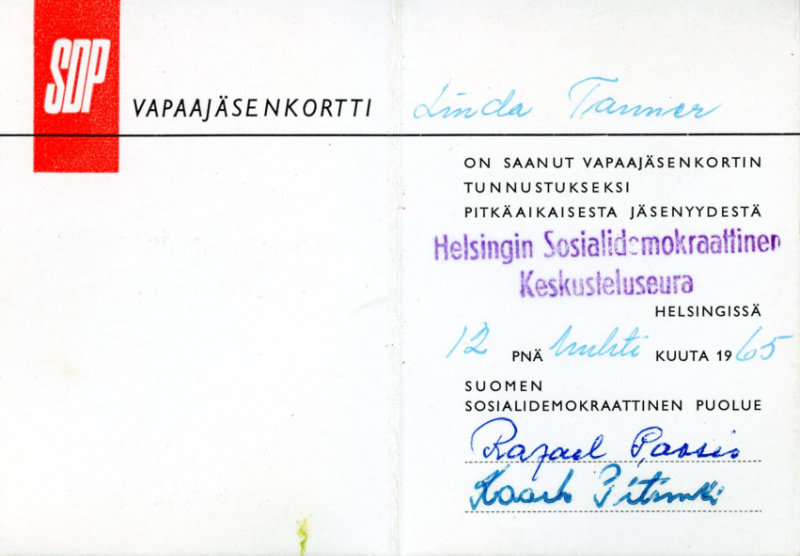 SDP
VAPAAJÄSENKORTTI
Linda Tanner
ON SAANUT VAPAAJÄSENKORTIN
TUNNUSTUKSEKSI
PITKÄAIKAISESTA JÄSENYYDESTÄ
Helsingin Sosialidemokraattinen
Keskusteluseura
HELSINGISSÄ
12 PNÄ huhti KUUTA 1965
SUOMEN
SOSIALIDEMOKRAATTINEN PUOLUE
Rafael Paasio
Kaarlo Pitsinki